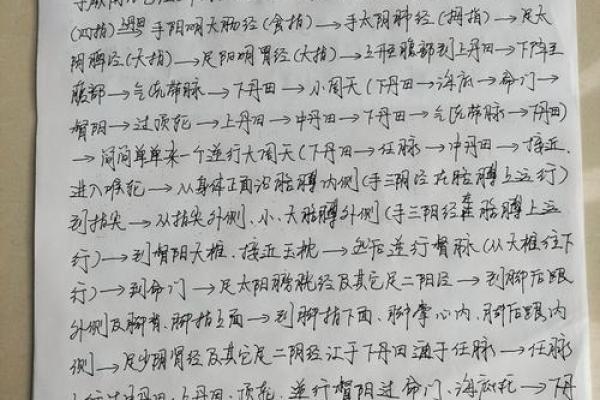 (四指)→手阳明大肠经(食指)→手太阴肺经(拇指)→足太
阴脾经(大指)→足阳明胃经(大指)→上胸腹部到上丹田→下降至
腹部→气流带脉→下丹田→小周天(下丹田→海底→命门→
督阳→过顶轮→上丹田→中丹田→下丹田→气流带脉→下丹田)
→简简单单来一个逆行大周天(下丹田→任脉→中丹田→接近.
进入喉轮→从身体正面沿胳膊内侧(手三阴经在胳膊上运行)
到指尖→从指尖外侧、小、大胳膊外侧(手三阳经在胳膊上运
行)→到督阳大椎、接近玉枕→然后逆行督脉(从大椎往下
行)→到命门→足太阳膀胱经及其它足二阳经→到脚后跟
外侧及脚背、脚指上面→到脚指下面、脚掌心内、脚后跟内
侧→足少阴肾经及其它足二阴经汇于下丹田通于任脉→任脉
上丹田、顶轮、逆行督阳过命门、海底轮→下丹